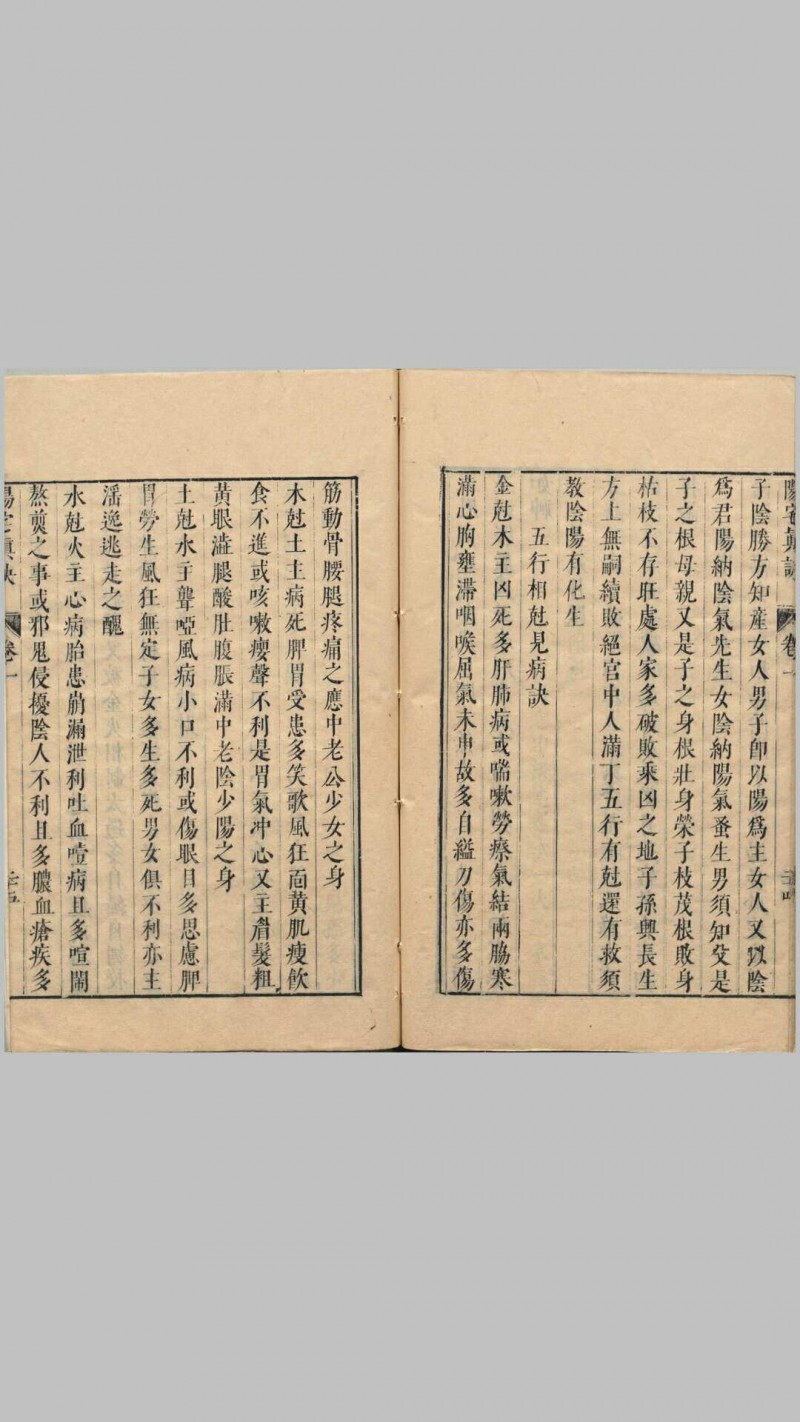 陽宅真訣 卷一
子陰勝方知產女人男子即以陽爲主女人又以陰
爲君陽納陰氣先生女陰納陽氣蚤生男須知父是
子之根母親又是子之身根壯身榮子枝茂根敗身
枯枝不存旺處人家多破敗乘凶之地子孫興長生
方上無嗣續敗絕官中人滿丁五行有尅還有救須
教陰陽有化生
五行相尅見病訣
金尅木主凶死多肝肺病或喘嗽勞瘵氣結兩脇寒
滿心胸壅滯咽喉屈氣未申故多自縊刀傷亦多傷
筋動骨腰腿疼痛之應中老公少女之身
木尅土主病死脾胃受患多笑歌風狂面黃肌瘦飲
食不進或咳嗽瘿聲不利是胃氣冲心又主眉髮粗
黃眼澁腿酸肚腹脹滿中老陰少陽之身
土尅水主聾啞風病小口不利或傷眼目多思慮脾
胃勞生風狂無定子女多生多死男女俱不利亦主
滛逸逃走之醜
水尅火主心病胎患崩漏泄利吐血噎病且多喧鬧
熬煎之事或邪鬼侵擾陰人不利且多膿血瘡疾多
陽宅真訣 卷一